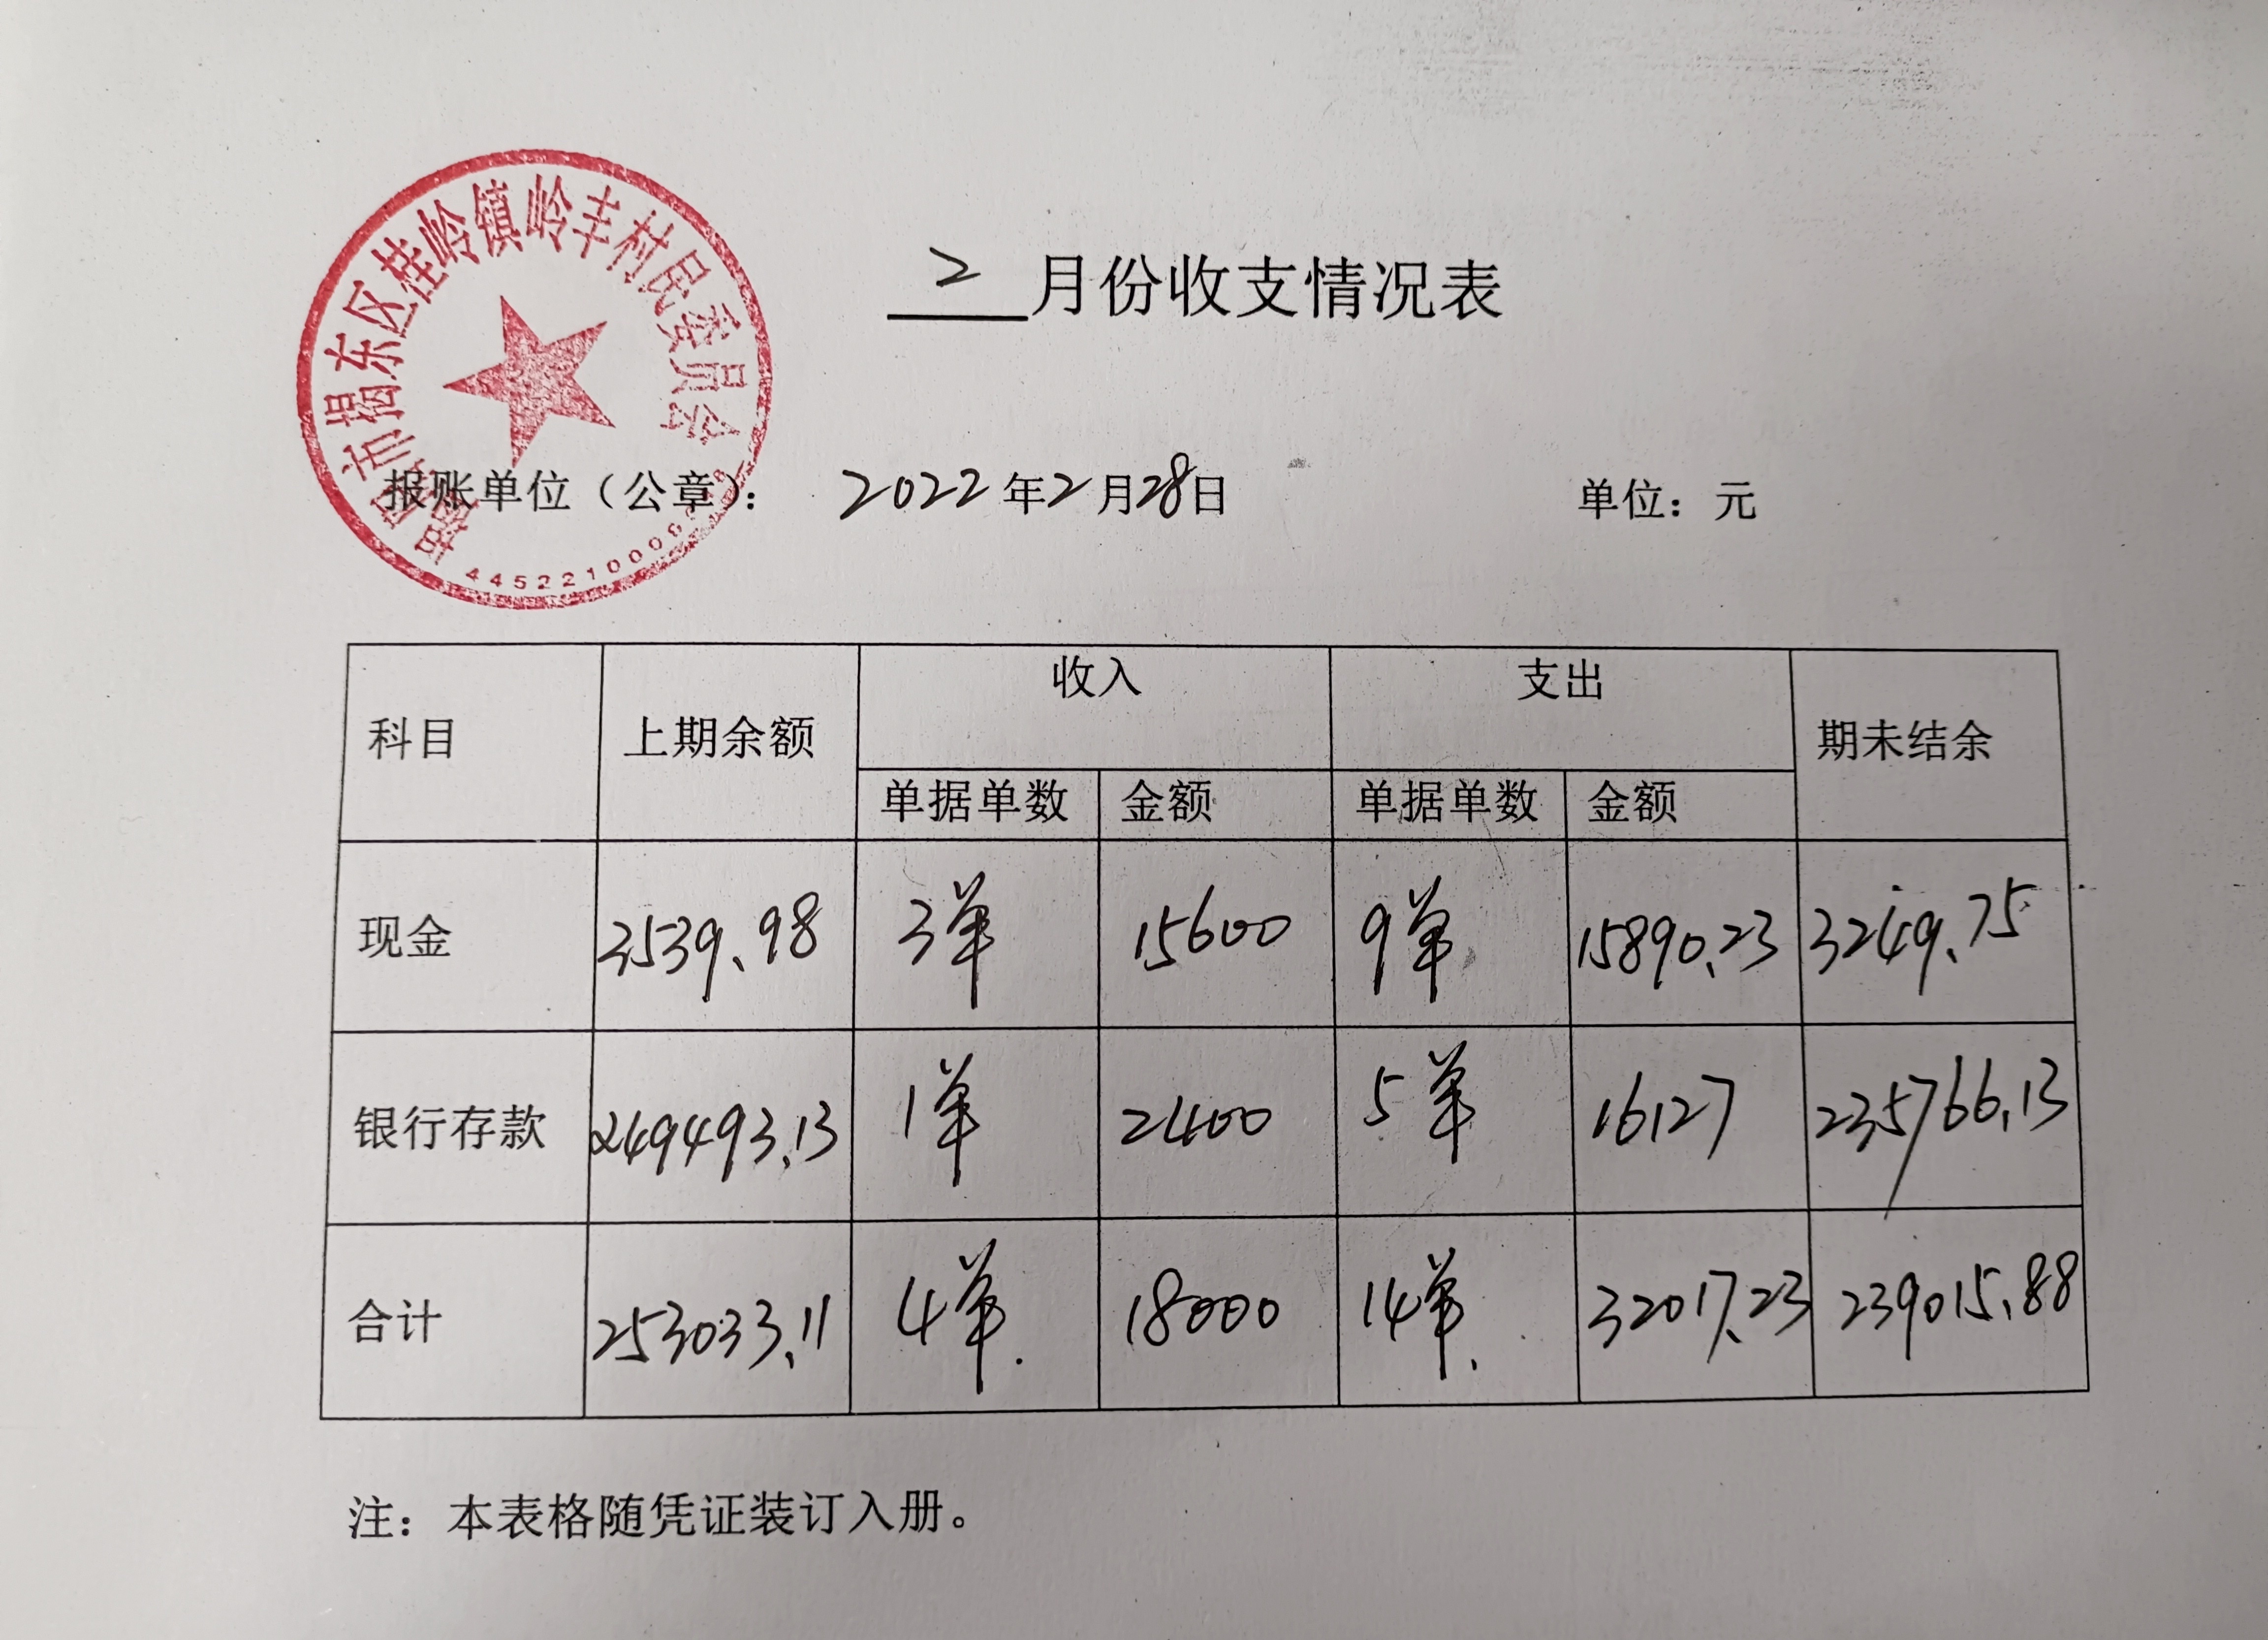 揭阳市揭东区桂岭镇岭丰村民委员会
2月份收支情况表
报账单位（公章）： 2022年2月28日 单位：元
科目 上期余额 收入 支出 期未结余
单据单数 金额 单据单数 金额
现金 3539.98 3单 15600 9单 15890.23 3249.75
银行存款 249493.13 1单 2400 5单 16127 235766.13
合计 253033.11 4单. 18000 14单. 32017.23 239015.88
注：本表格随凭证装订入册。